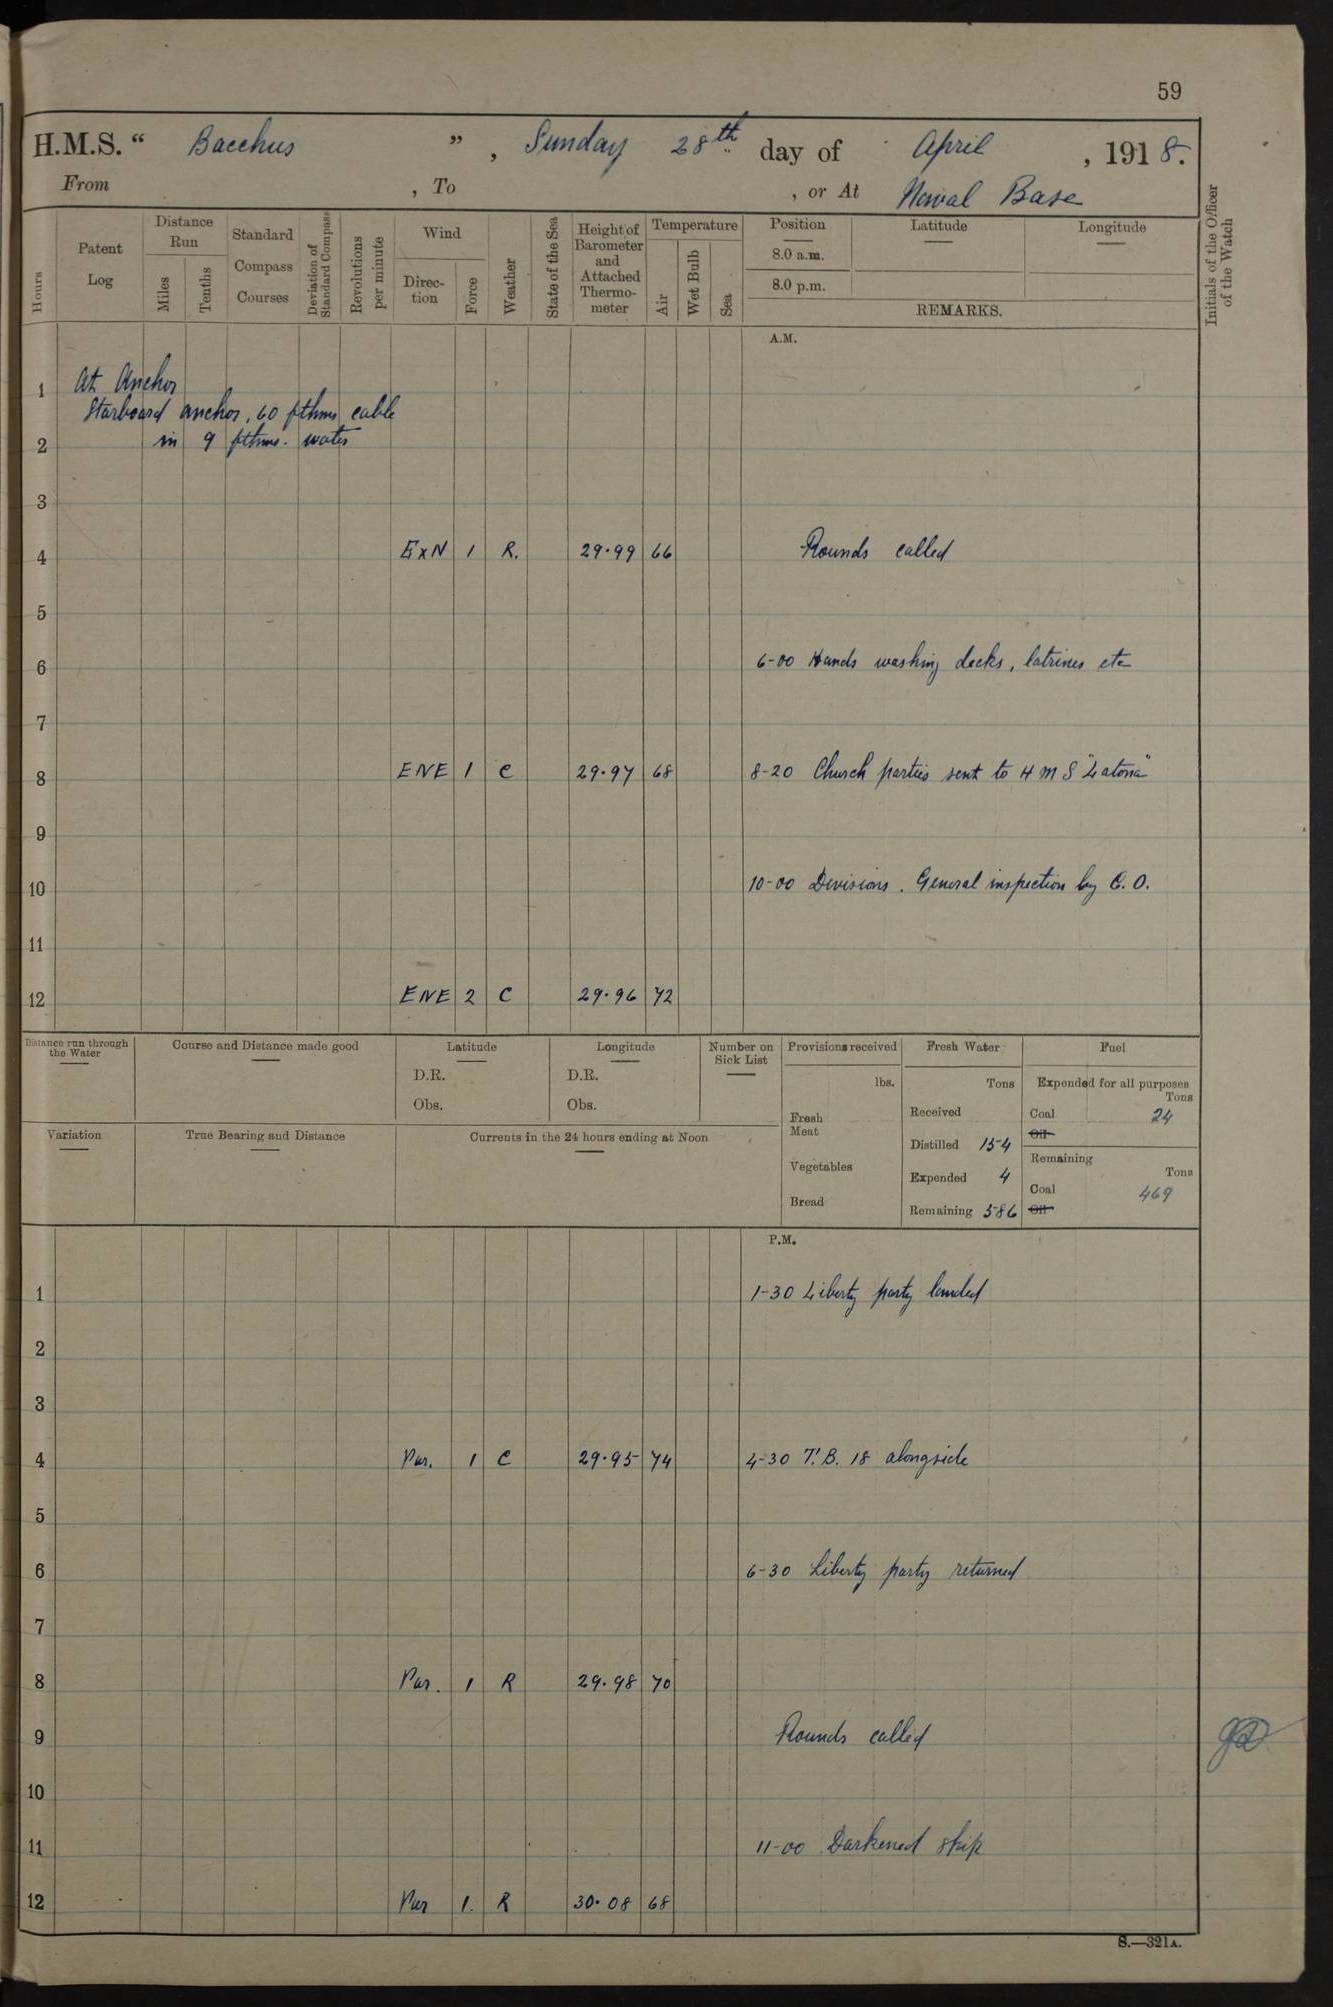 59
H.M.S. “ Bacchus ” , Sunday 28th day of April , 1918.
From , To , or At Naval Base
Hours
Patent Log
Distance Run
Miles
Tenths
Standard Compass Courses
Deviation of Standard Compass
Revolutions per minute
Wind
Direction
Force
Weather
State of the Sea
Height of Barometer and Attached Thermometer
Temperature
Air
Wet Bulb
Sea
Position
8.0 a.m.
8.0 p.m.
Latitude
Longitude
REMARKS.
Initials of the Officer of the Watch
A.M.
1 At Anchor
Starboard anchor, 60 fthms cable
2 in 9 fthms. water
3
4 ExN 1 R. 29.99 66 Rounds called
5
6 6-00 Hands washing decks, latrines etc
7
8 ENE 1 C 29.97 68 8-20 Church parties sent to H M S "Latona"
9
10 10-00 Divisions. General inspection by C.O.
11
12 ENE 2 C 29.96 72
Distance run through the Water
Course and Distance made good
Latitude
D.R.
Obs.
Longitude
D.R.
Obs.
Number on Sick List
Provisions received
lbs.
Fresh Meat
Vegetables
Bread
Fresh Water
Tons
Received
Distilled 154
Expended 4
Remaining 586
Fuel
Expended for all purposes
Tons
Coal 24
Oil
Remaining
Tons
Coal 469
Oil
Variation
True Bearing and Distance
Currents in the 24 hours ending at Noon
P.M.
1 1-30 Liberty party landed
2
3
4 Var. 1 C 29.95 74 4-30 T.B. 18 alongside
5
6 6-30 Liberty party returned
7
8 Var. 1 R 29.98 70
9 Rounds called
10
11 11-00 Darkened ship
12 Var 1. R 30.08 68
S.—321A.